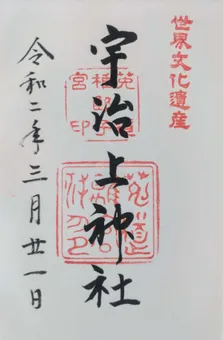 世界文化遺産
宇治上神社
令和二年三月廿一日